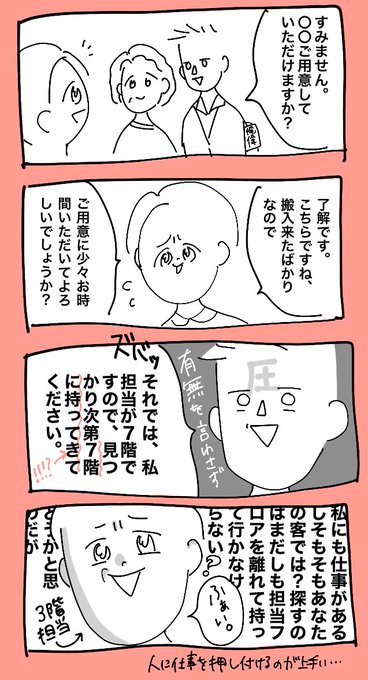 すみません。
〇〇ご用意して
いただけますか?
了解です。
こちらですね、
搬入来たばかり
なので
ご用意に少々お時
間いただいてよろ
しいでしょうか?
ズバッ
圧
有無を言わさず
それでは、私
担当が7階で
すので、見つ
かり次第7階
に持ってきて
ください。
!!!?
私にも仕事がある
しそもそもあなた
の客では?探すの
はまだしも担当フ
ロアを離れて持っ
て行かなけ
らない?
ふぁい。
どうかと思
うだが
3階
担当
人に仕事を押し付けるのが上手い…